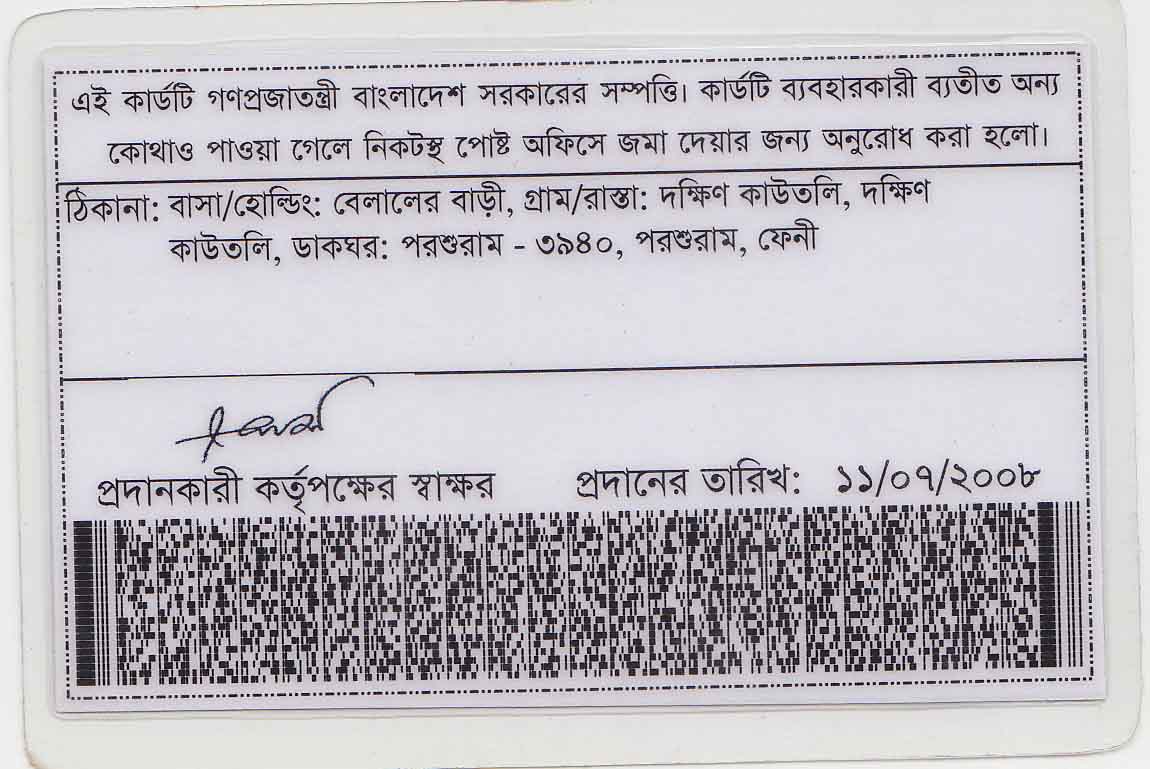 এই কার্ডটি গণপ্রজাতন্ত্রী বাংলাদেশ সরকারের সম্পত্তি। কার্ডটি ব্যবহারকারী ব্যতীত অন্য
কোথাও পাওয়া গেলে নিকটস্থ পোষ্ট অফিসে জমা দেয়ার জন্য অনুরোধ করা হলো।
ঠিকানা: বাসা/হোল্ডিং: বেলালের বাড়ী, গ্রাম/রাস্তা: দক্ষিণ কাউতলি, দক্ষিণ
কাউতলি, ডাকঘর: পরশুরাম - ৩৯৪০, পরশুরাম, ফেনী
প্রদানকারী কর্তৃপক্ষের স্বাক্ষর প্রদানের তারিখ: ১১/০৭/২০০৮